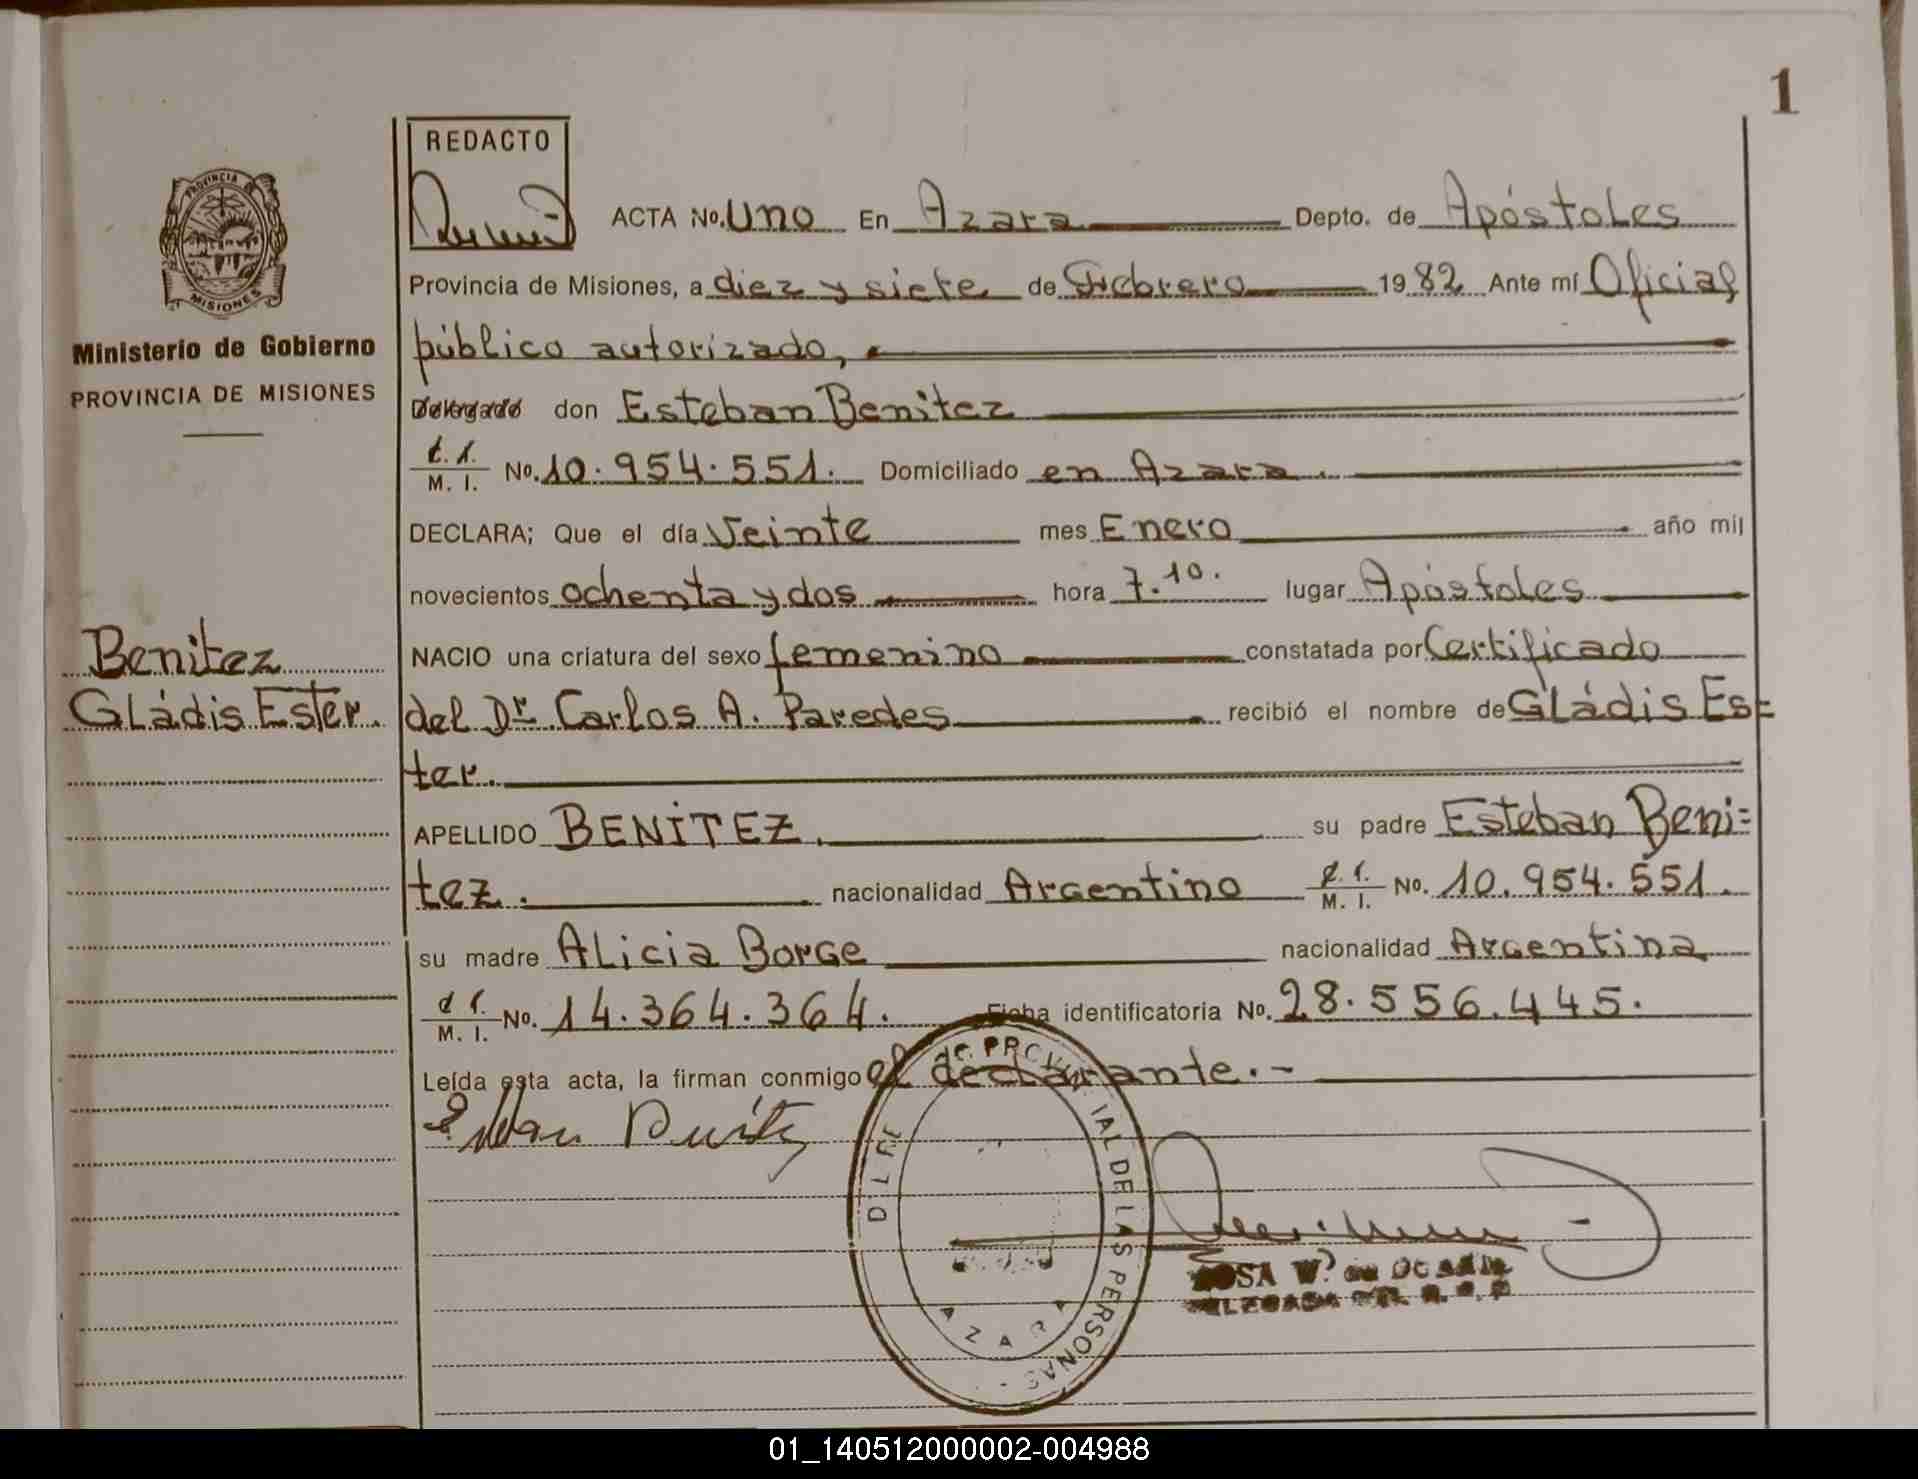 1
REDACTO
ACTA No. Uno En Azara Depto. de Apóstoles
Provincia de Misiones, a diez y siete de Febrero 1982 Ante mí Oficial
público autorizado,
Delegado don Esteban Benitez
C.I.
M. I. No. 10.954.551. Domiciliado en Azara.
DECLARA; Que el día Veinte mes Enero año mil
novecientos ochenta y dos hora 7.10. lugar Apóstoles
NACIO una criatura del sexo femenino constatada por Certificado
del Dr. Carlos A. Paredes recibió el nombre de Gládis Es=
ter.
APELLIDO BENÍTEZ. su padre Esteban Beni=
tez. nacionalidad Argentino C.I.
M. I. No. 10.954.551.
su madre Alicia Borge nacionalidad Argentina
C.I.
M. I. No. 14.364.364. Ficha identificatoria No. 28.556.445.
Leída esta acta, la firman conmigo el declarante.-
PROVINCIA DE
MISIONES
Ministerio de Gobierno
PROVINCIA DE MISIONES
Benitez
Gládis Ester.
Esteban Benítez
PROVINCIAL DE LAS PERSONAS
AZARA
ROSA
DELEGADA
01_140512000002-004988